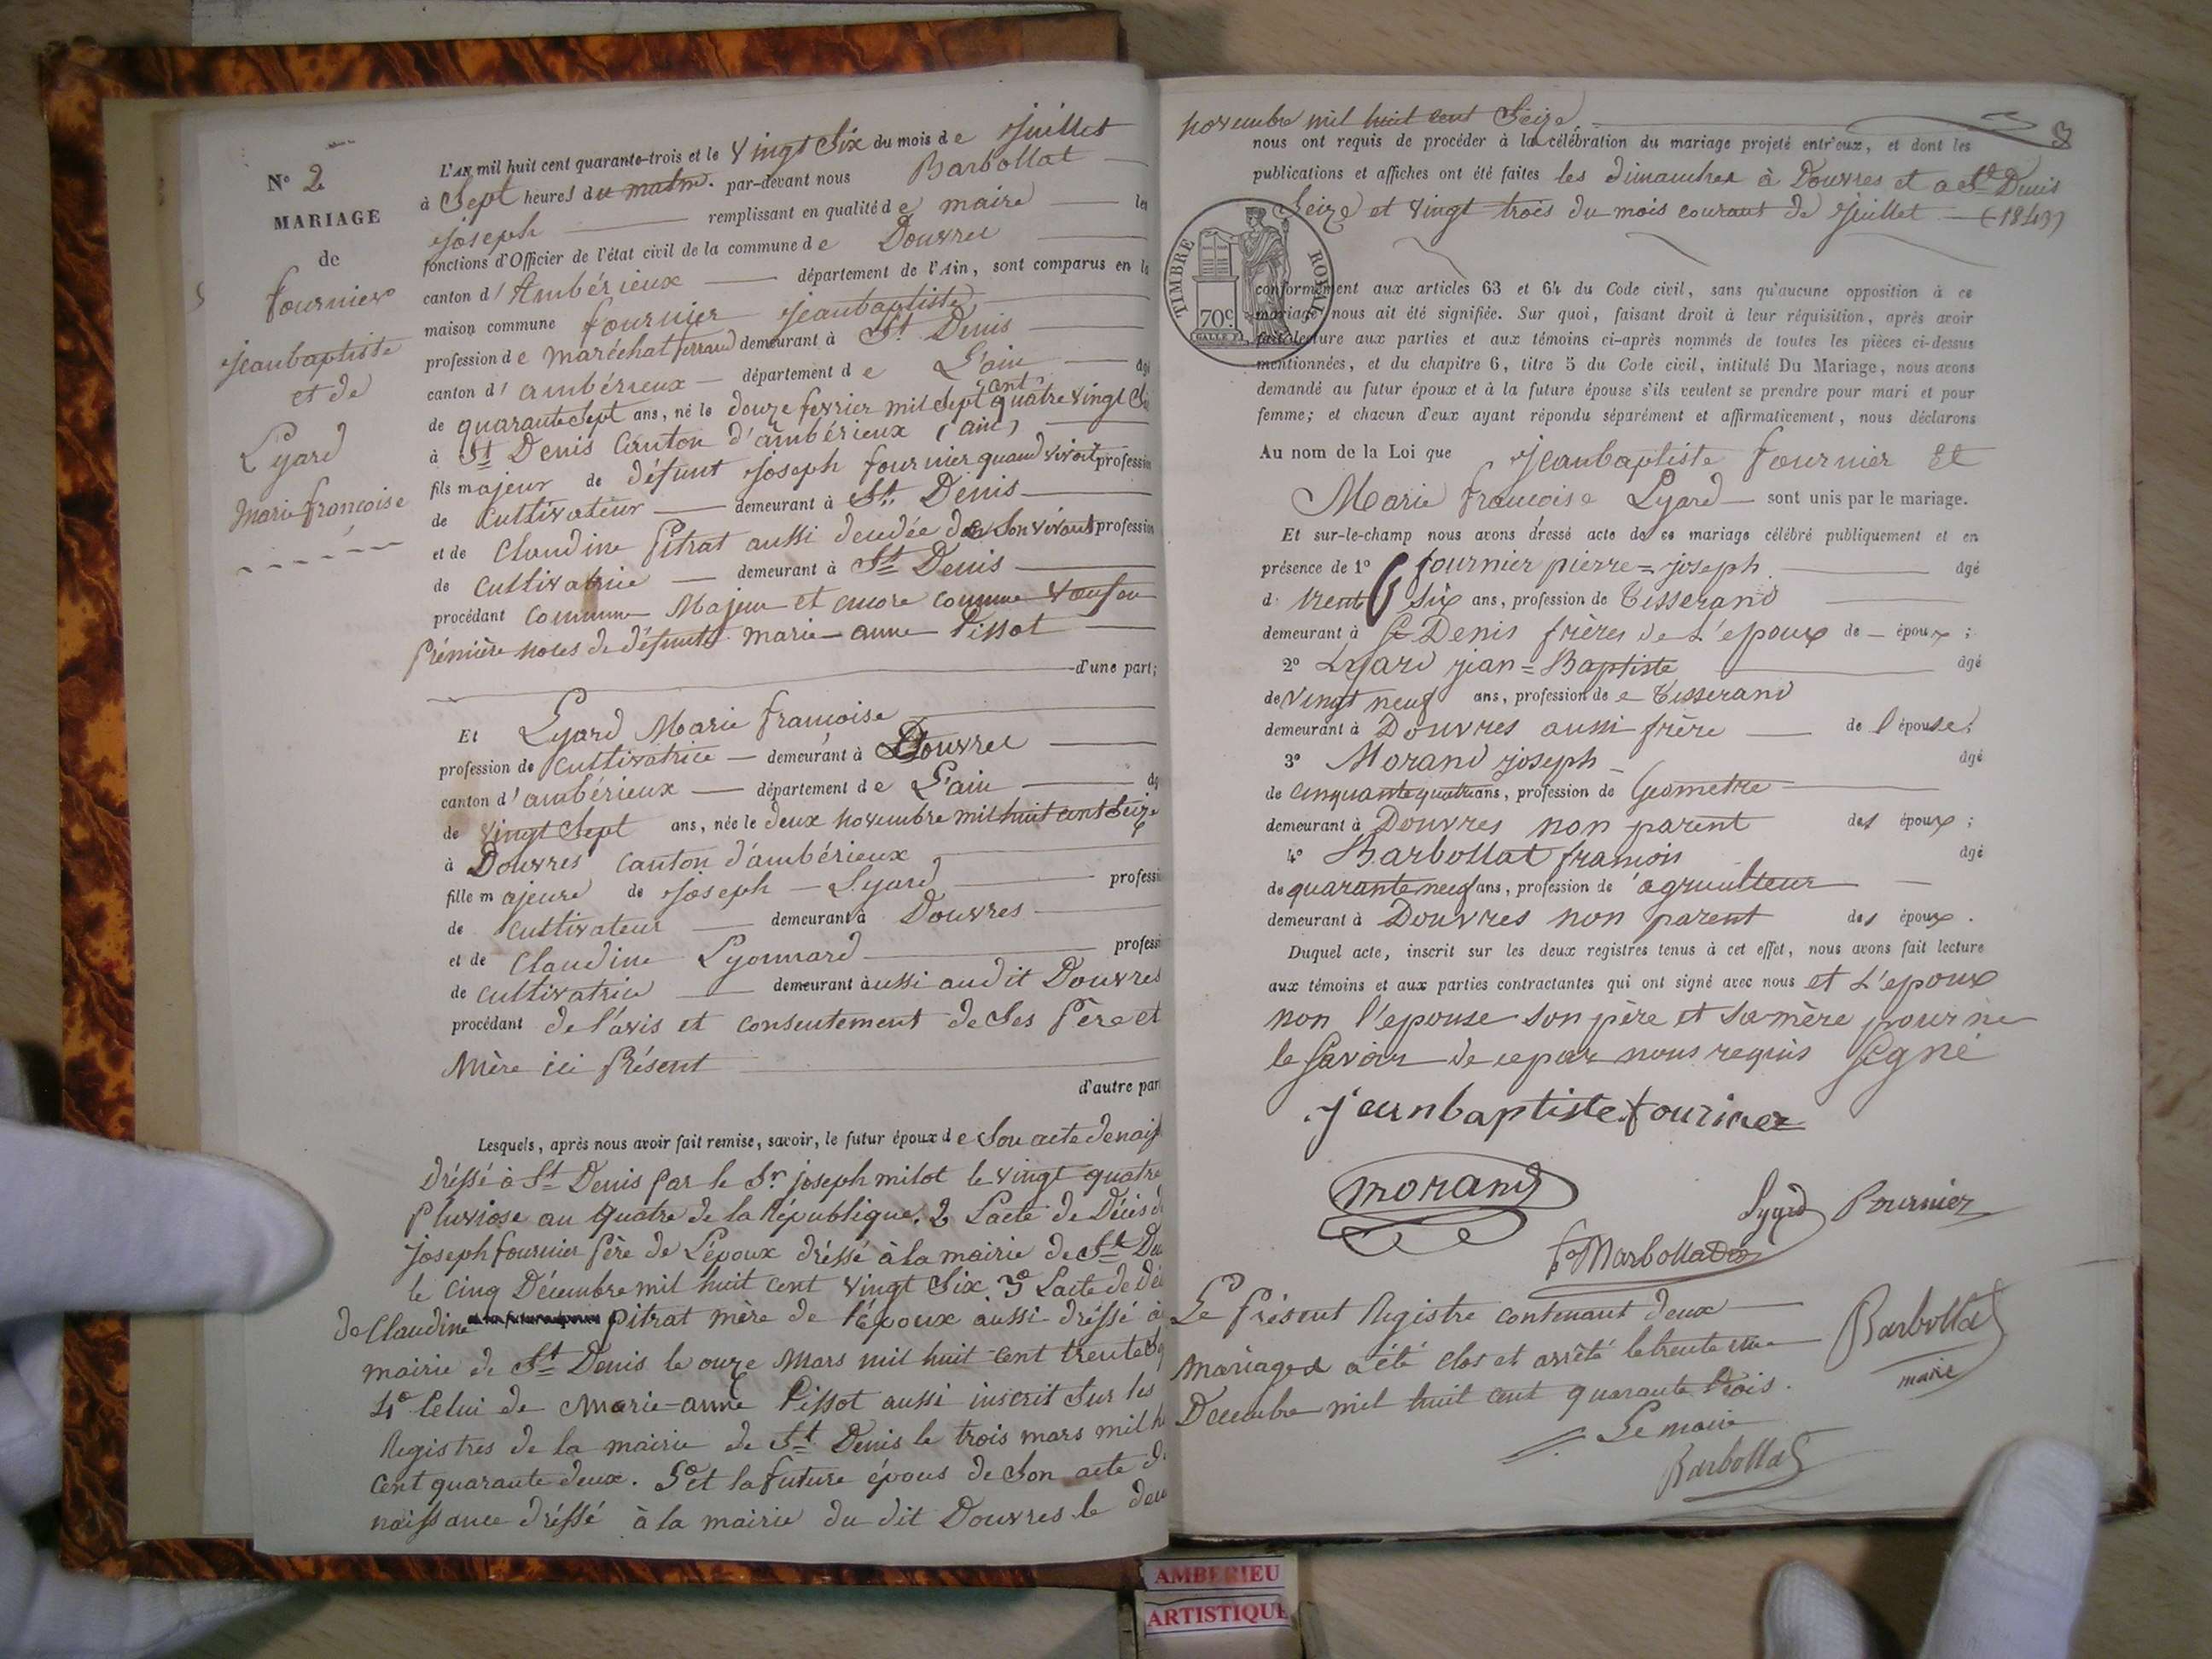 N° 2
MARIAGE
de
fournier
jeanbaptiste
et de
Lyard
Marie françoise
L'AN mil huit cent quarante-trois et le Vingt Six du mois de Juillet
à Sept heures du matin. par-devant nous Barbollat
Joseph remplissant en qualité de maire les
fonctions d'Officier de l'état civil de la commune de Douvres
canton d'Ambérieux département de l'Ain, sont comparus en la
maison commune fournier Jeanbaptiste
profession de maréchal ferrand demeurant à St Denis
canton d'ambérieux département de L'ain âgé
de quarante Sept ans, né le douze fevrier mil Sept cent quatre vingt
à St Denis Canton d'ambérieux (ain)
fils majeur de défunt Joseph fournier quand vivoit profession
de Cultivateur demeurant à St Denis
et de Claudine Pitrat aussi décédée de Son vivant profession
de Cultivatrice demeurant à St Denis
procédant comme Majeur et encore comme Veuf en
Première noces de défunte marie-anne Pissot
d'une part;
Et Lyard Marie françoise
profession de Cultivatrice demeurant à Douvres
canton d'ambérieux département de L'ain
de vingt Sept ans, née le deux novembre mil huit cent Seize
à Douvres canton d'ambérieux
fille majeure de Joseph Lyard professi
de Cultivateur demeurant à Douvres
et de Claudine Lyonnard professi
de cultivatrice demeurant aussi audit Douvres
procédant de l'avis et consentement de Ses Père et
Mère ici Présent
d'autre part
Lesquels, après nous avoir fait remise, savoir, le futur époux de Son acte de naiss
dréssé à St Denis par le Sr joseph milot le vingt quatre
Pluviose an quatre de la République. 2 Lacte de Décès d
Joseph fournier Père de L'époux dréssé à la mairie de St Den
le cinq Décembre mil huit cent vingt Six. 3° Lacte de dé
de Claudine Pitrat mère de l'époux aussi dréssé à
mairie de St Denis le onze Mars mil huit cent trente
4° Celui de Marie-anne Pissot aussi inscrit Sur les
Registres de la mairie de St Denis le trois mars mil h
Cent quarante deux. 5° et la future épous de Son acte d
naissance dréssé à la mairie du dit Douvres le deu
novembre mil huit cent Seize.
3
nous ont requis de procéder à la célébration du mariage projeté entr'eux, et dont les
publications et affiches ont été faites les dimanches à Douvres et a St Denis
Seize et vingt trois du mois courant de Juillet (1843)
TIMBRE ROYAL
70c.
conformément aux articles 63 et 64 du Code civil, sans qu'aucune opposition à ce
mariage nous ait été signifiée. Sur quoi, faisant droit à leur réquisition, après avoir
fait lecture aux parties et aux témoins ci-après nommés de toutes les pièces ci-dessus
mentionnées, et du chapitre 6, titre 5 du Code civil, intitulé Du Mariage, nous avons
demandé au futur époux et à la future épouse s'ils veulent se prendre pour mari et pour
femme; et chacun d'eux ayant répondu séparément et affirmativement, nous déclarons
Au nom de la Loi que Jeanbaptiste fournier Et
Marie françoise Lyard sont unis par le mariage.
Et sur-le-champ nous avons dressé acte de ce mariage célébré publiquement et en
présence de 1° fournier pierre=joseph âgé
d trente Six ans, profession de Tisserand
demeurant à St Denis frères de L'epoux de époux;
2° Lyard jean=Baptiste âgé
de Vingt neuf ans, profession de Tisserand
demeurant à Douvres aussi frère de l'épouse;
3° Morand joseph âgé
de cinquante quatre ans, profession de Géometre
demeurant à Douvres non parent des époux;
4° Barbollat françois âgé
de quarante neuf ans, profession de agriculteur
demeurant à Douvres non parent des époux.
Duquel acte, inscrit sur les deux registres tenus à cet effet, nous avons fait lecture
aux témoins et aux parties contractantes qui ont signé avec nous et L'epoux
non l'epouse son père et sa mère pour ne
le Savoir de ce par nous requis Signé
jeanbaptiste fournier
morand
Lyard fournier
Barbollat
Le Présent Registre contenant deux
Mariages a été clos et arrêté le trente une
Décembre mil huit cent quarante trois.
Le maire
Barbollat
Barbollat
maire
AMBERIEU
ARTISTIQUE